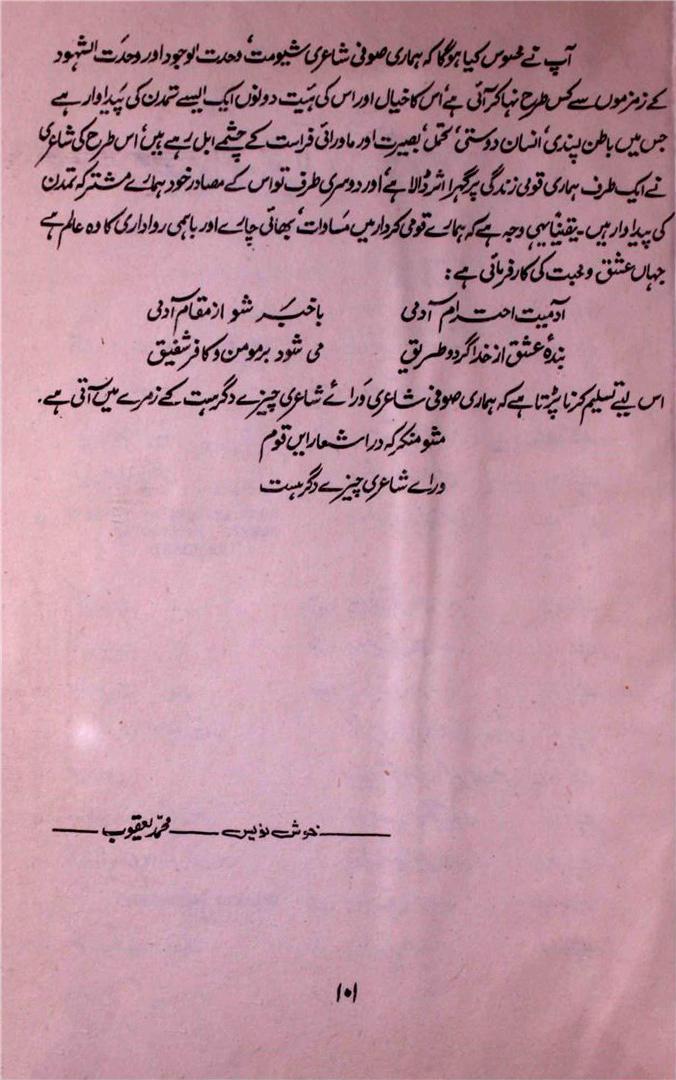 آپ نے محسوس کیا ہوگا کہ ہماری صوفی شاعری شیومت، وحدت الوجود اور وحدت الشہود
کے زمزموں سے کس طرح نہا کر آئی ہے، اس کا خیال اور اس کی ہیئت دونوں ایک ایسے تمدن کی پیداوار ہے
جس میں باطن پسندی، انسان دوستی، تحمل، بصیرت اور ماورائی فراست کے چشمے ابل رہے ہیں، اس طرح کی شاعری
نے ایک طرف ہماری قومی زندگی پر گہرا اثر ڈالا ہے، اور دوسری طرف تو اس کے مصادر خود ہمارے مشترکہ تمدن
کی پیداوار ہیں۔ یقیناً یہی وجہ ہے کہ ہمارے قومی کردار میں مساوات، بھائی چارے اور باہمی رواداری کا وہ عالم ہے
جہاں عشق و محبت کی کار فرمائی ہے:
آدمیت احترام آدمی باخبر شو از مقام آدمی
بندۂ عشق از خدا گرد و طریق می شود بر مومن و کافر شفیق
اس لیے تسلیم کرنا پڑتا ہے کہ ہماری صوفی شاعری ورائے شاعری چیزے دگر ہست کے زمرے میں آتی ہے۔
مشو منکر کہ در اشعار ایں قوم
ورائے شاعری چیزے دگر ہست
خوش نویس ــــ محمد یعقوب
۱۰۱